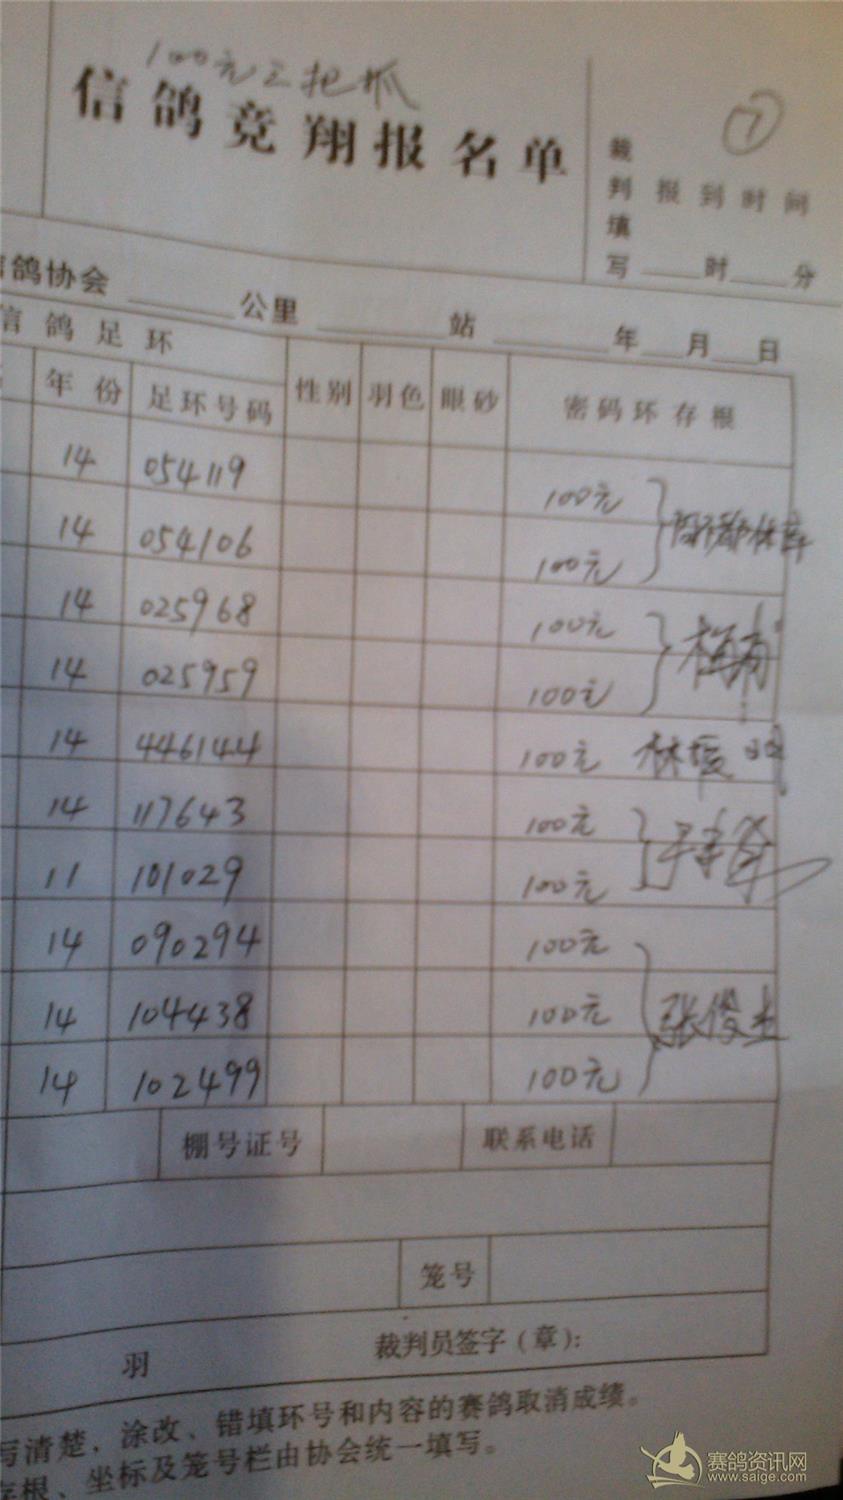 100元三把抓
信鸽竞翔报名单
⑦
裁判填写
报到时间
时 分
信鸽协会 公里 站 年 月 日
信鸽足环
年份 足环号码 性别 羽色 眼砂 密码环存根
14 054119 100元
14 054106 100元
14 025968 100元
14 025959 100元
14 446144 100元
14 117643 100元
11 101029 100元
14 090294 100元
14 104438 100元 张俊杰
14 102499 100元
棚号证号 联系电话
笼号
羽 裁判员签字(章):
写清楚,涂改、错填环号和内容的赛鸽取消成绩。
存根、坐标及笼号栏由协会统一填写。
赛鸽资讯网
www.saige.com